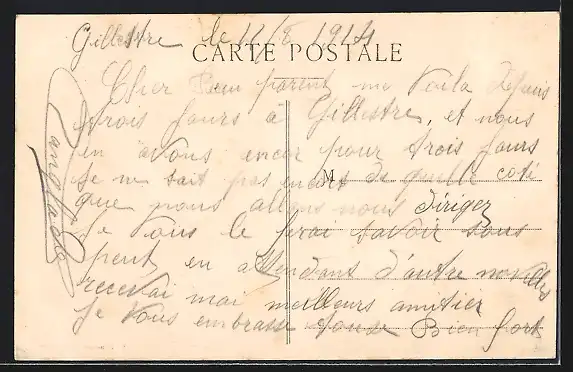 Gillestre le 12/8 1914
CARTE POSTALE
Cher Bien parent me voila depuis
trois jours à Gillestre, et nous
en avons encor pour trois jours
Je ne sait pas encore de quelle coté
M
que nous allons nous dirigez
Je vous le ferai savoir sous
peut en attendant d'autre novelles
recevai mai meilleurs amitier
Je vous embrasse touse Bien fort